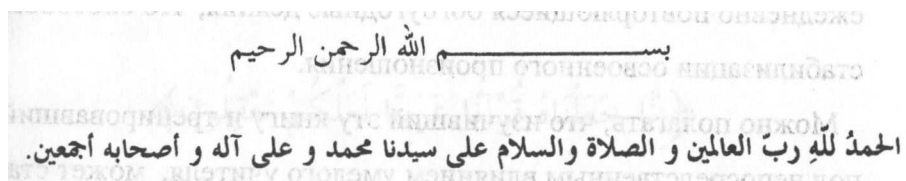 بســـــــــــــــم الله الرحمن الرحيم
الحمدُ للّهِ ربّ العالمين و الصلاة والسلام على سيدنا محمد و على آله و أصحابه أجمعين.